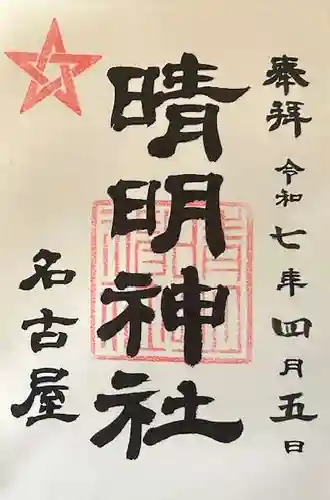 奉拝 令和七年四月五日
晴明神社
名古屋